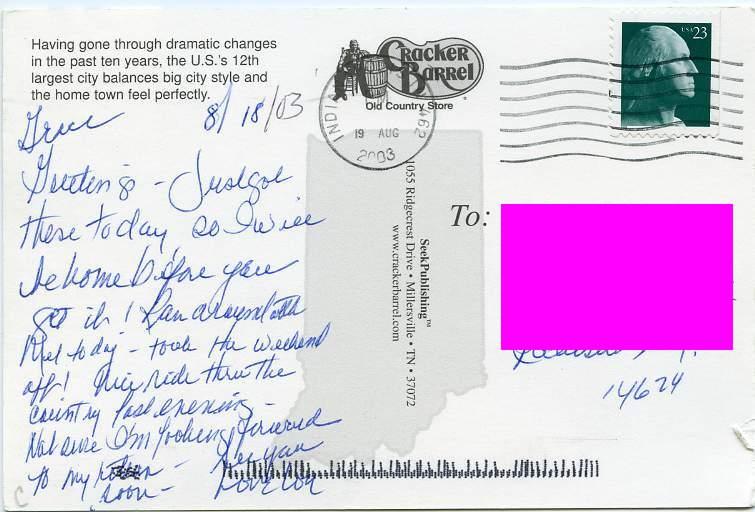 Having gone through dramatic changes
in the past ten years, the U.S.'s 12th
largest city balances big city style and
the home town feel perfectly.
Cracker
Barrel
Old Country Store
USA 23
19 AUG
2003
8/18/03
Greetings - Just got
these today so I will
be home before you
get it! Ran around with
Mel today - took the weekend
off! Nice ride thru the
country last evening -
Not sure I'm looking forward
to my
soon - See you
Love
To:
SeekPublishing™
1055 Ridgecrest Drive • Millersville • TN • 37072
www.crackerbarrel.com
14624